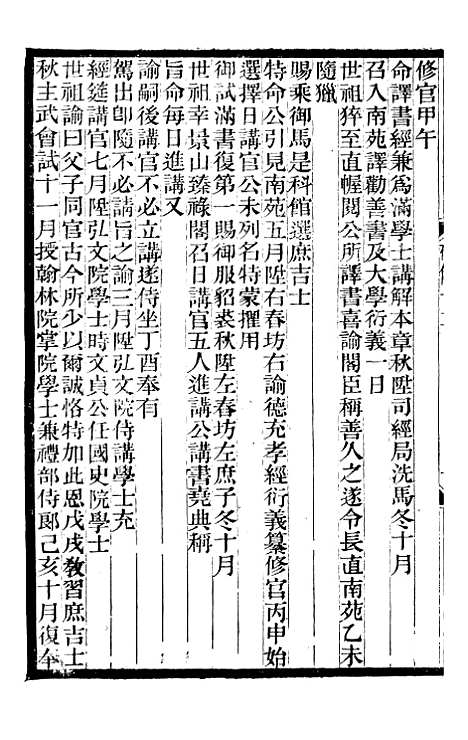 修官甲午
命譯書經兼爲滿學士講解本章秋陞司經局洗馬冬十月
召入南苑譯勸善書及大學衍義一日
世祖猝至直幄閱公所譯書喜諭閣臣稱善久之遂令長直南苑乙未
隨獵
賜乘御馬是科館選庶吉士
特命公引見南苑五月陞右春坊右諭德充孝經衍義纂修官丙申始
選擇日講官公未列名特蒙擢用
御試滿書復第一賜御服貂裘秋陞左春坊左庶子冬十月
世祖幸景山臻祿閣召日講官五人進講公講書堯典稱
旨命每日進講又
諭嗣後講官不必立講遂侍坐丁酉奉有
駕出卽隨不必請旨之諭三月陞弘文院侍講學士充
經筵講官七月陞弘文院學士時文貞公任國史院學士
世祖諭曰父子同官古今所少以爾誠恪特加此恩戊戌敎習庶吉士
秋主武會試十一月授翰林院掌院學士兼禮部侍郞己亥十月復奉